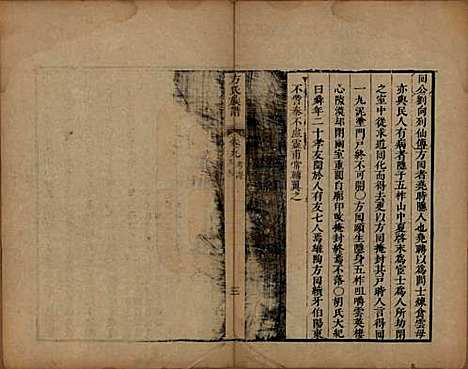 回公劉向列仙傳方回者堯時隱人也堯聘以為閭士鍊食雲母
亦與民人有病者隱于五柞山中夏啓末為宦士為人所劫閉
之室中從求道回化而得去更以方回掩封其戶時人言得回
一丸泥塗門戶終不可開〇方回頌生隱身五柞咀嚼雲英棲
心隙漠劫閉幽室重關自廓印改掩封終焉不落〇胡氏大紀
曰舜年二十孝友聞於人有友七人焉雄陶方回續牙伯陽東
不訾秦不虛靈甫常輔翼之
方氏族譜
卷九
三